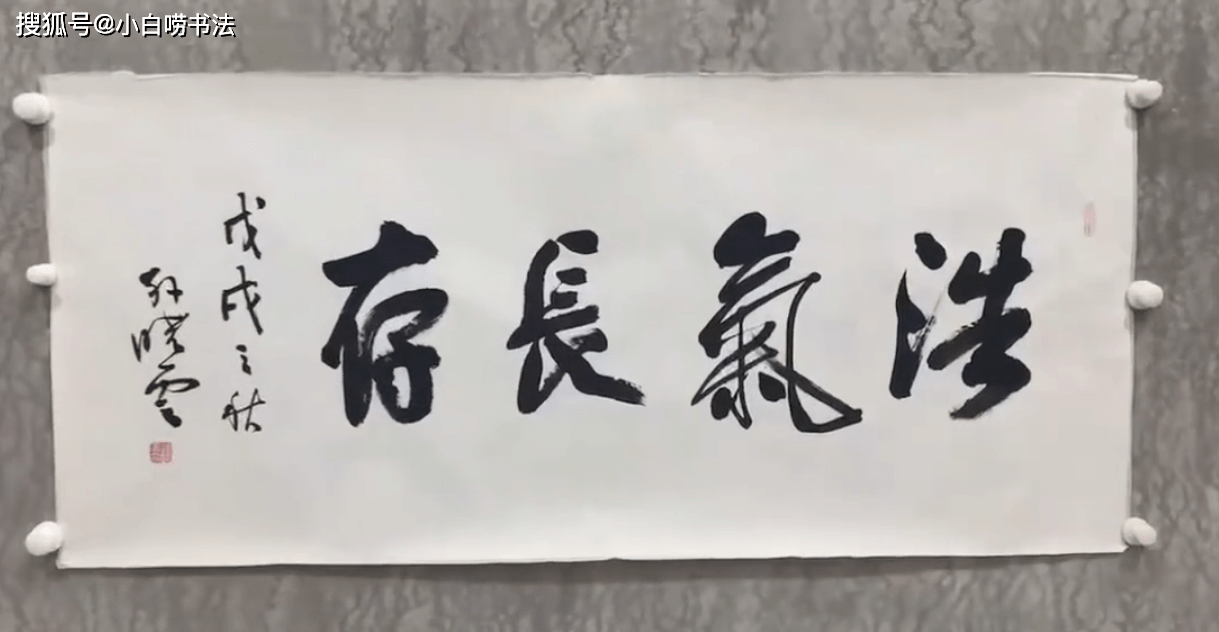 搜狐号@小白唠书法
浩氣長存
戊戌之秋
孙晓雲